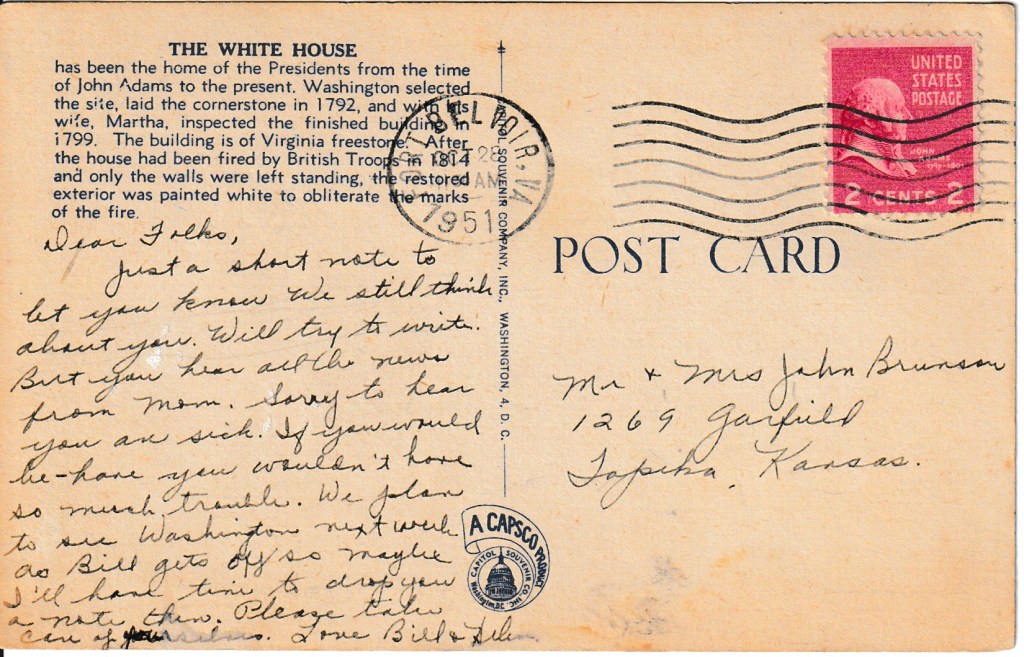 THE WHITE HOUSE
has been the home of the Presidents from the time
of John Adams to the present. Washington selected
the site, laid the cornerstone in 1792, and with his
wife, Martha, inspected the finished building in
1799. The building is of Virginia freestone. After
the house had been fired by British Troops in 1814
and only the walls were left standing, the restored
exterior was painted white to obliterate the marks
of the fire.
Dear Folks,
Just a short note to
let you know We still think
about you. Will try to write.
But you hear all the news
from Mom. Sorry to hear
you are sick. If you would
be-have you wouldn't have
so much trouble. We plan
to see Washington next week
as Bill gets off so maybe
I'll have time to drop you
a note then. Please take
care of yourselves. Love Bill & Helen
SOUVENIR COMPANY, INC., WASHINGTON, 4, D. C.
FORT BELVOIR, VA
OCT 28
AM
1951
UNITED
STATES
POSTAGE
JOHN
ADAMS
1797-1801
2 CENTS 2
POST CARD
Mr & Mrs John Brunson
1269 Garfield
Topeka, Kansas.
A CAPSCO PRODUCT
CAPITOL SOUVENIR CO. INC.
Washington, D.C.